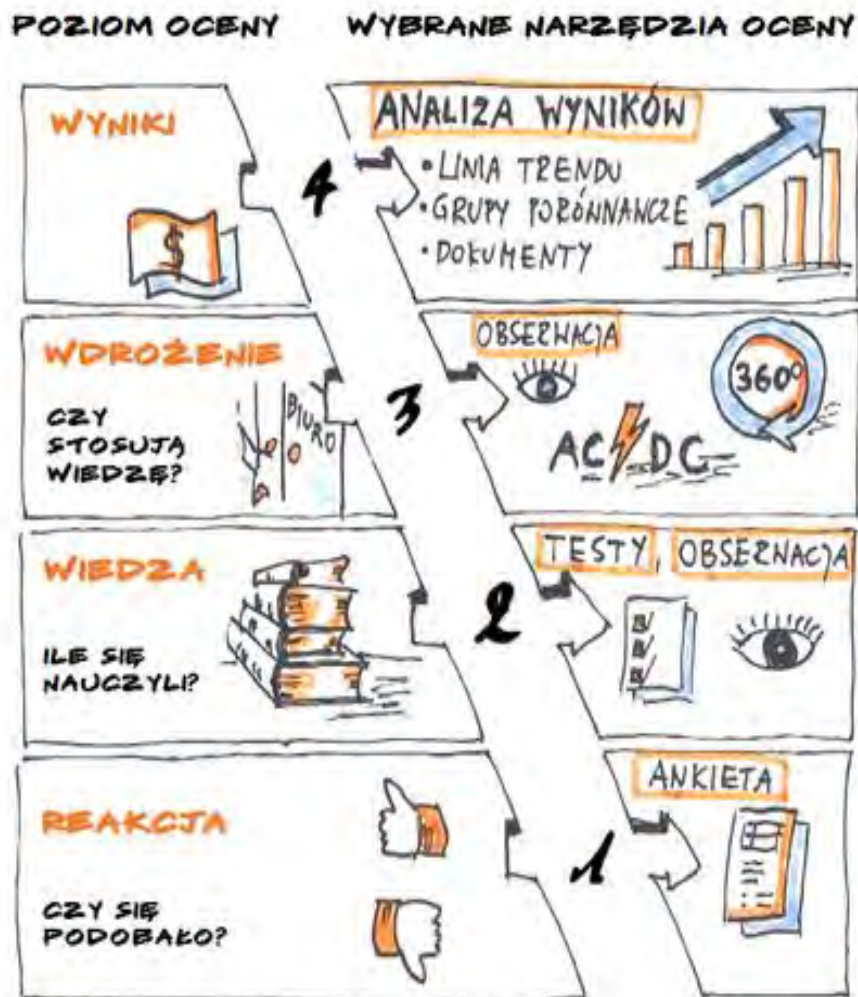 POZIOM OCENY WYBRANE NARZĘDZIA OCENY
WYNIKI
$
4
ANALIZA WYNIKÓW
• LINIA TRENDU
• GRUPY PORÓWNAWCZE
• DOKUMENTY
WDROŻENIE
CZY
STOSUJĄ
WIEDZĘ?
BIURO
3
OBSERWACJA
360°
AC DC
WIEDZA
ILE SIĘ
NAUCZYLI?
2
TESTY, OBSERWACJA
REAKCJA
CZY SIĘ
PODOBAŁO?
1
ANKIETA